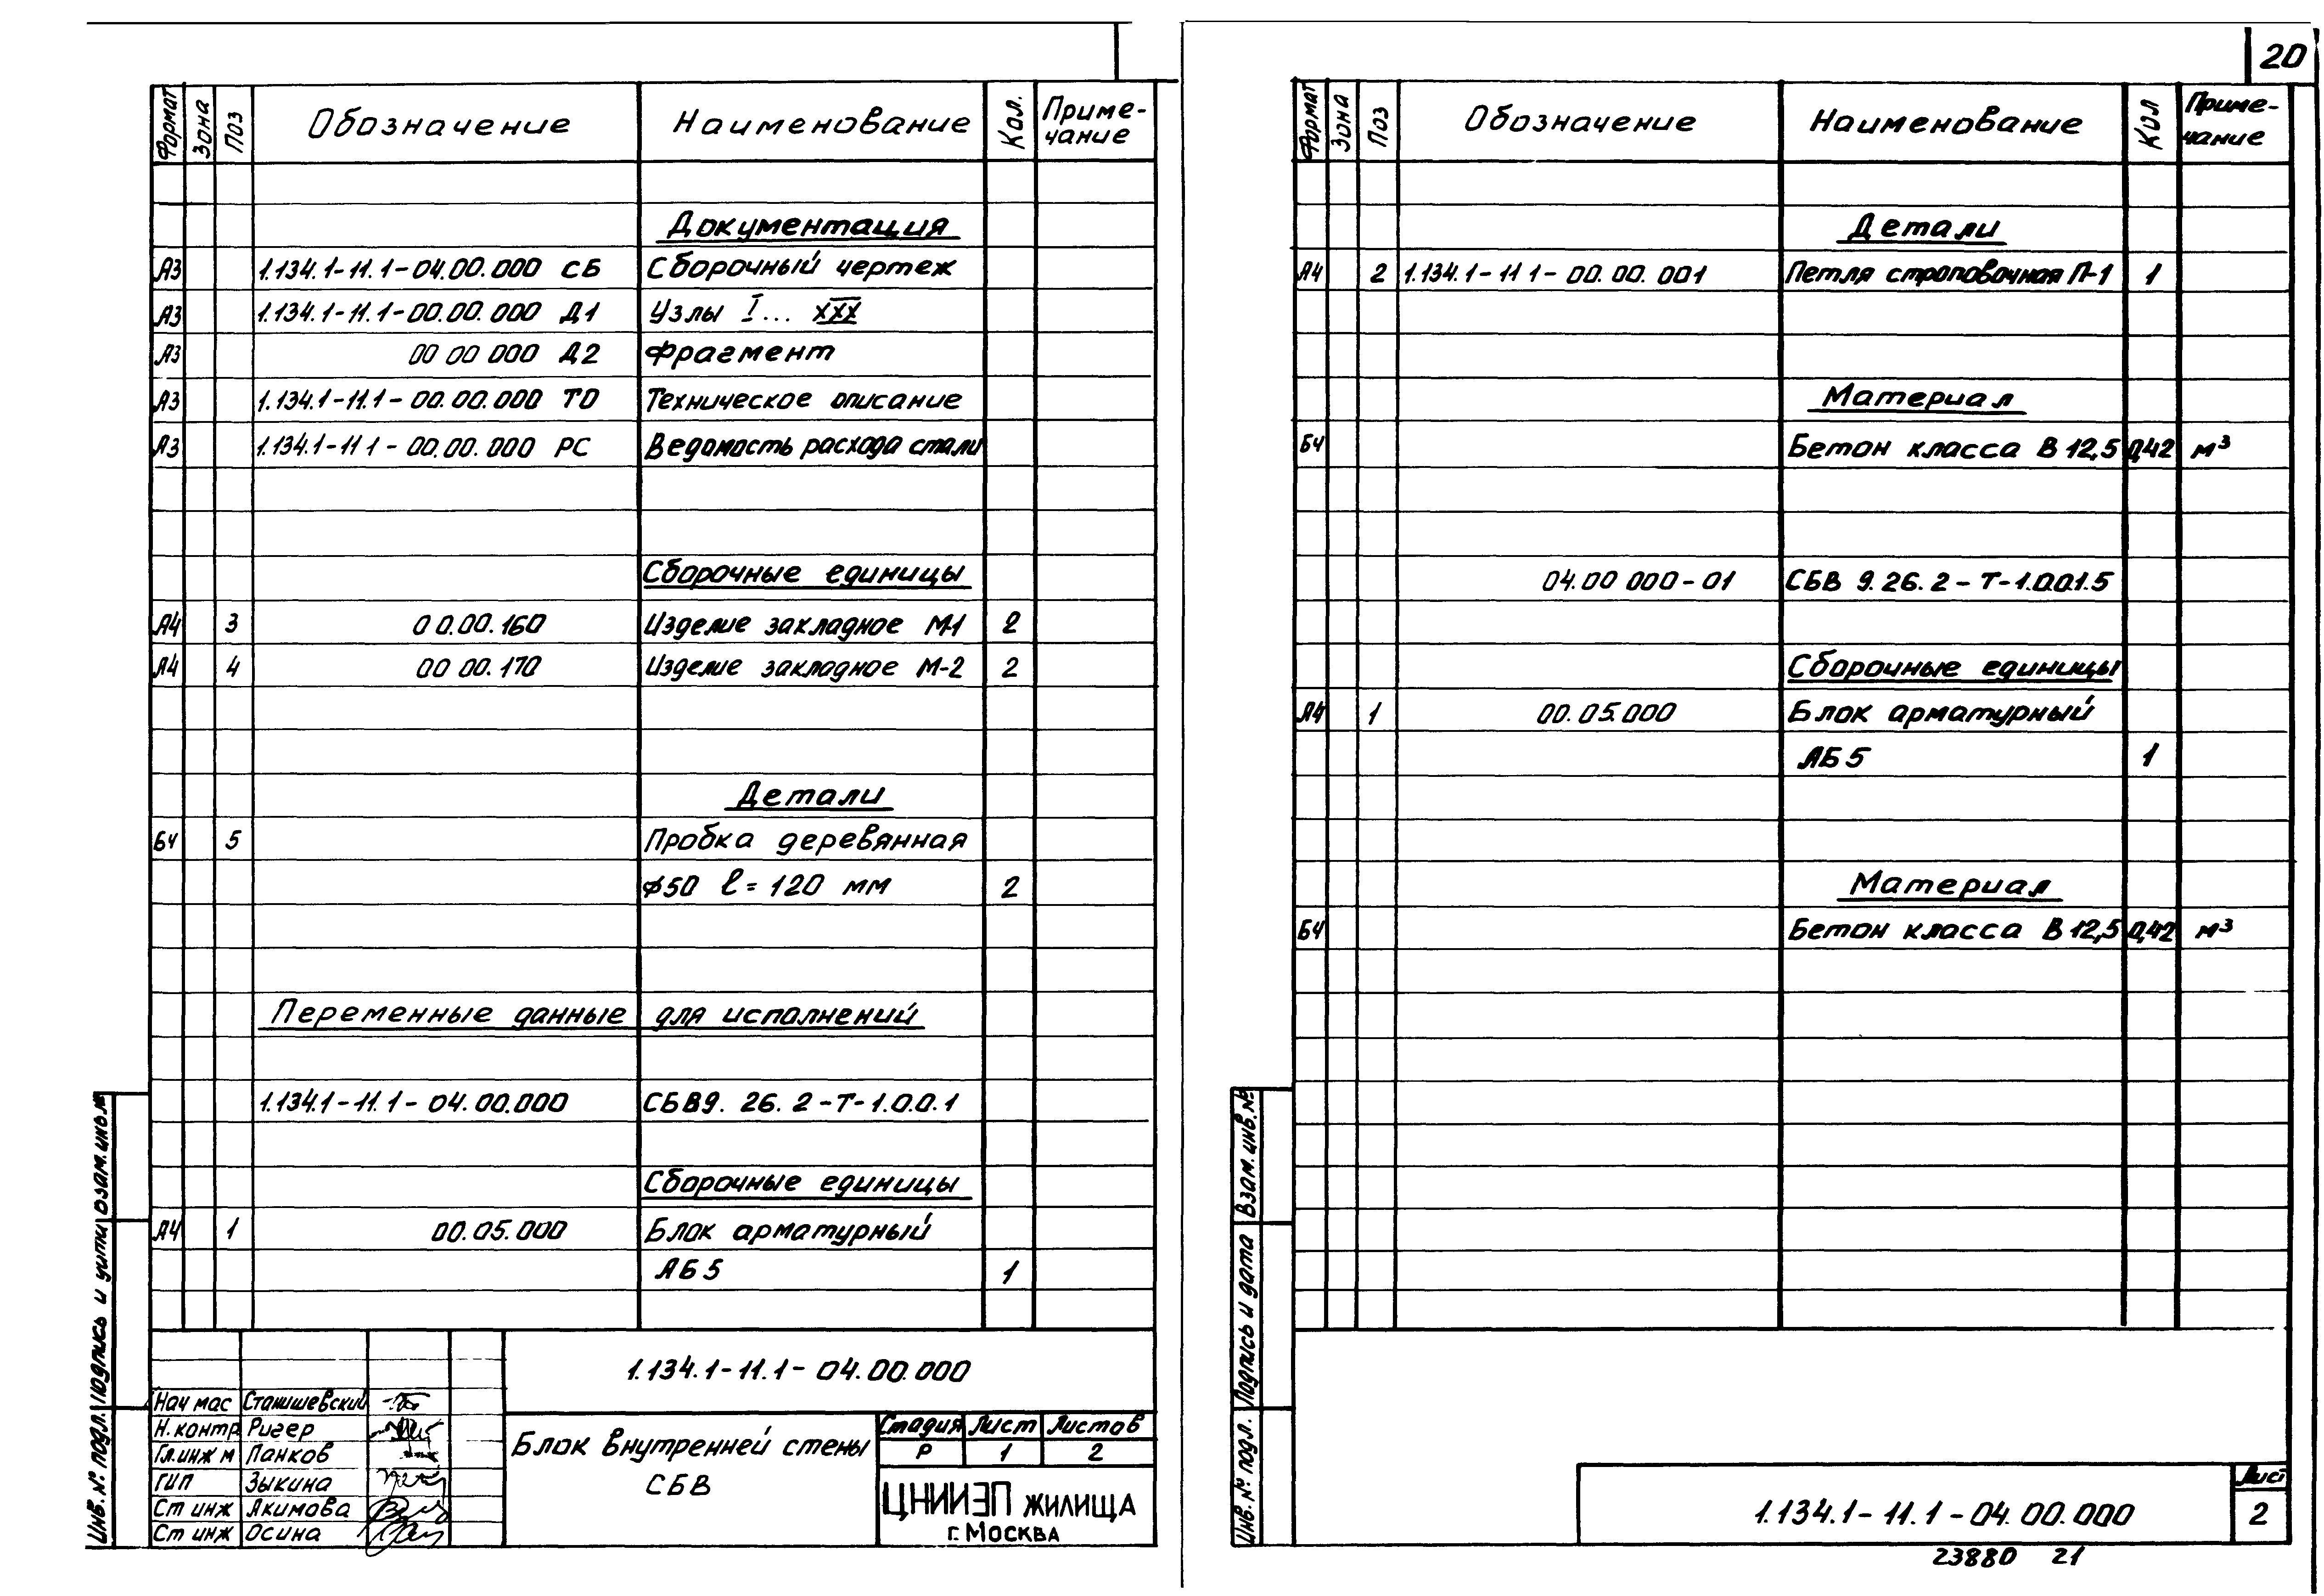 Формат Зона Поз Обозначение Наименование Кол. Приме-
чание
Документация
А3 1.134.1-11.1-04.00.000 СБ Сборочный чертеж
А3 1.134.1-11.1-00.00.000 Д1 Узлы I... XXX
А3 00 00 000 Д2 Фрагмент
А3 1.134.1-11.1-00.00.000 ТО Техническое описание
А3 1.134.1-11 1-00.00.000 РС Ведомость расхода стали
Сборочные единицы
А4 3 00.00.160 Изделие закладное М-1 2
А4 4 00 00.170 Изделие закладное М-2 2
Детали
БЧ 5 Пробка деревянная
ϕ50 ℓ=120 мм 2
Переменные данные для исполнений
1.134.1-11.1-04.00.000 СБВ9. 26. 2-Т-1.0.0.1
Сборочные единицы
А4 1 00.05.000 Блок арматурный
АБ5 1
1.134.1-11.1-04.00.000
Нач мас Станишевский
Н.контр Ригер
Гл.инж м Панков
ГИП Зыкина
Ст инж Якимова
Ст инж Осина
Блок внутренней стены
СБВ
Стадия Лист Листов
Р 1 2
ЦНИИЭП жилища
г. Москва
Инв. № подл. Подпись и взам.инв.№
20
Формат Зона Поз Обозначение Наименование Кол Приме-
чание
Детали
А4 2 1.134.1-11 1-00.00.001 Петля строповочная П-1 1
Материал
БЧ Бетон класса В 12,5 0,42 м³
04.00 000-01 СБВ 9.26.2-Т-1.0.0.1.5
Сборочные единицы
А4 1 00.05.000 Блок арматурный
АБ5 1
Материал
БЧ Бетон класса В 12,5 0,42 м³
Инв. № подл. Подпись и дата Взам. инв. №
1.134.1-11.1-04.00.000
Лист
2
23880 21